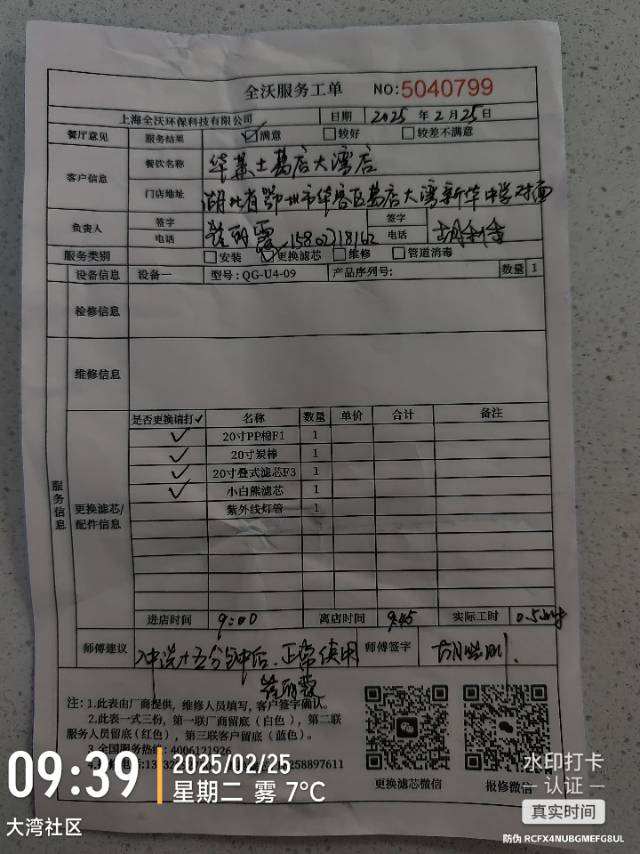 全沃服务工单 NO:5040799
上海全沃环保科技有限公司 日期 2025 年 2 月 25 日
餐厅意见 服务结果 ☑满意 □较好 □较差不满意
客户信息 餐饮名称 华莱士葛店大湾店
门店地址 湖北省鄂州市华容区葛店大湾新华中学对面
负责人 签字 签字
电话 电话
服务类别 □安装 ☑更换滤芯 □维修 □管道消毒
设备信息 设备一 型号: QG-U4-09 产品序列号: 数量 1
检修信息
维修信息
服务信息
更换滤芯/配件信息
是否更换请打✓ 名称 数量 单价 合计 备注
✓ 20寸PP棉F1 1
✓ 20寸炭棒 1
✓ 20寸叠式滤芯F3 1
✓ 小白熊滤芯 1
紫外线灯管 1
进店时间 9:00 离店时间 9:45 实际工时
师傅建议 冲洗十五分钟后、正常使用 师傅签字
注: 1.此表由厂商提供，维修人员填写，客户签字确认。
2.此表一式三份，第一联厂商留底（白色），第二联
服务人员留底(红色），第三联客户留底（蓝色）。
3.全国服务热线: 4006121926
58897611
更换滤芯微信 报修微信
09:39 2025/02/25
星期二 雾 7°C
大湾社区
水印打卡
认证
真实时间
防伪 RCFX4NUBGMEFG8UL